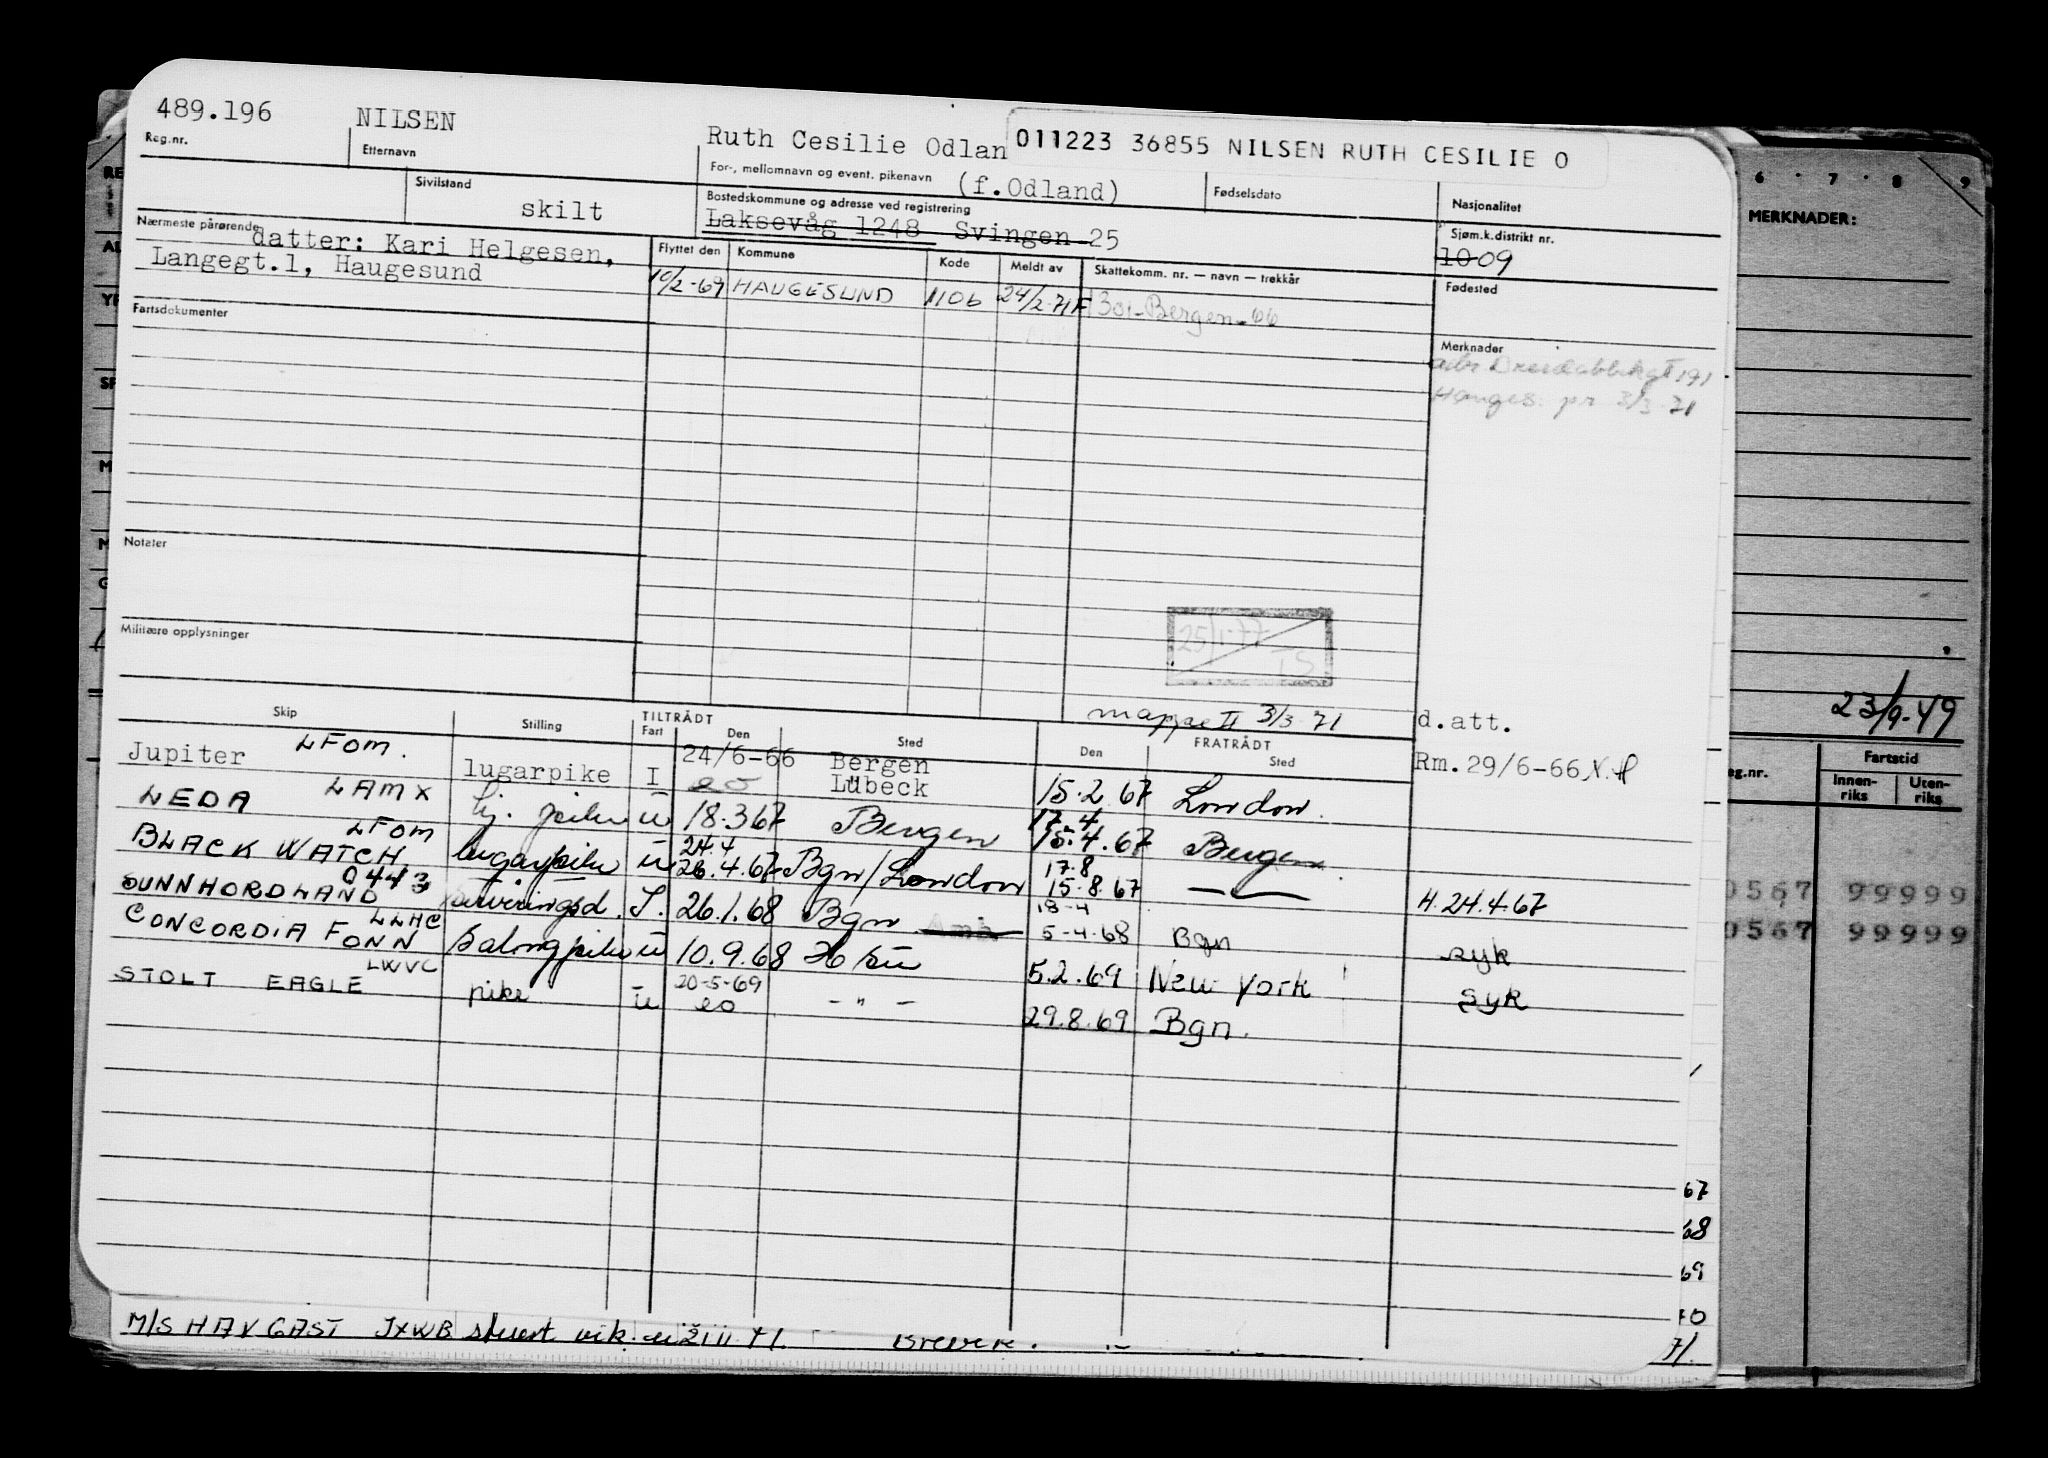 489.196 NILSEN Ruth Cesilie Odlan 011223 36855 NILSEN RUTH CESILIE O
Reg.nr. Etternavn For-, mellomnavn og event. pikenavn (f.Odland) Fødselsdato Nasjonalitet
Sivilstand skilt Bostedskommune og adresse ved registrering Sjøm.k.distrikt nr.
Laksevåg 1248 Svingen 25 10 09
Nærmeste pårørende datter: Kari Helgesen,
Langegt.1, Haugesund
Flyttet den Kommune Kode Meldt av Skattekomm. nr. — navn — trekkår Fødested
10/2-69 HAUGESUND 1106 24/2-71 F 1301-Bergen-66
Fartsdokumenter
Merknader
191
Hauges. pr 3/3-71
Notater
Militære opplysninger
25/1-77
IS
mappe II 3/3-71 d.att.
Skip Stilling TILTRÅDT FRATRÅDT
Fart Den Sted Den Sted
Jupiter LFOM. lugarpike I 24/6-66 Bergen 15.2.67 London. Rm.29/6-66 N.H
eo Lübeck
LEDA LAMX pike u 18.3 67 Bergen 17.4 15.4.67 Bergen
BLACK WATCH LFOM lugarpike u 24.4 26.4.67 Bgn/London 17.8 15.8.67 H.24.4.67
SUNNHORDLAND 0443 serveringsd. I. 26.1.68 Bgn 18-4 5-4-68 Bgn syk
CONCORDIA FONN LLHC salongpike u 10.9.68 5.2.69 New York syk
STOLT EAGLE LWVC pike u 20-5-69 eo - " - 29.8.69 Bgn.
M/S HAVGAST JXWB stuert vik.
67
68
69
70
71.
6 · 7 · 8 9
MERKNADER:
23/9-49
eg.nr. Fartstid
Innenriks Utenriks
0567 99999
0567 99999